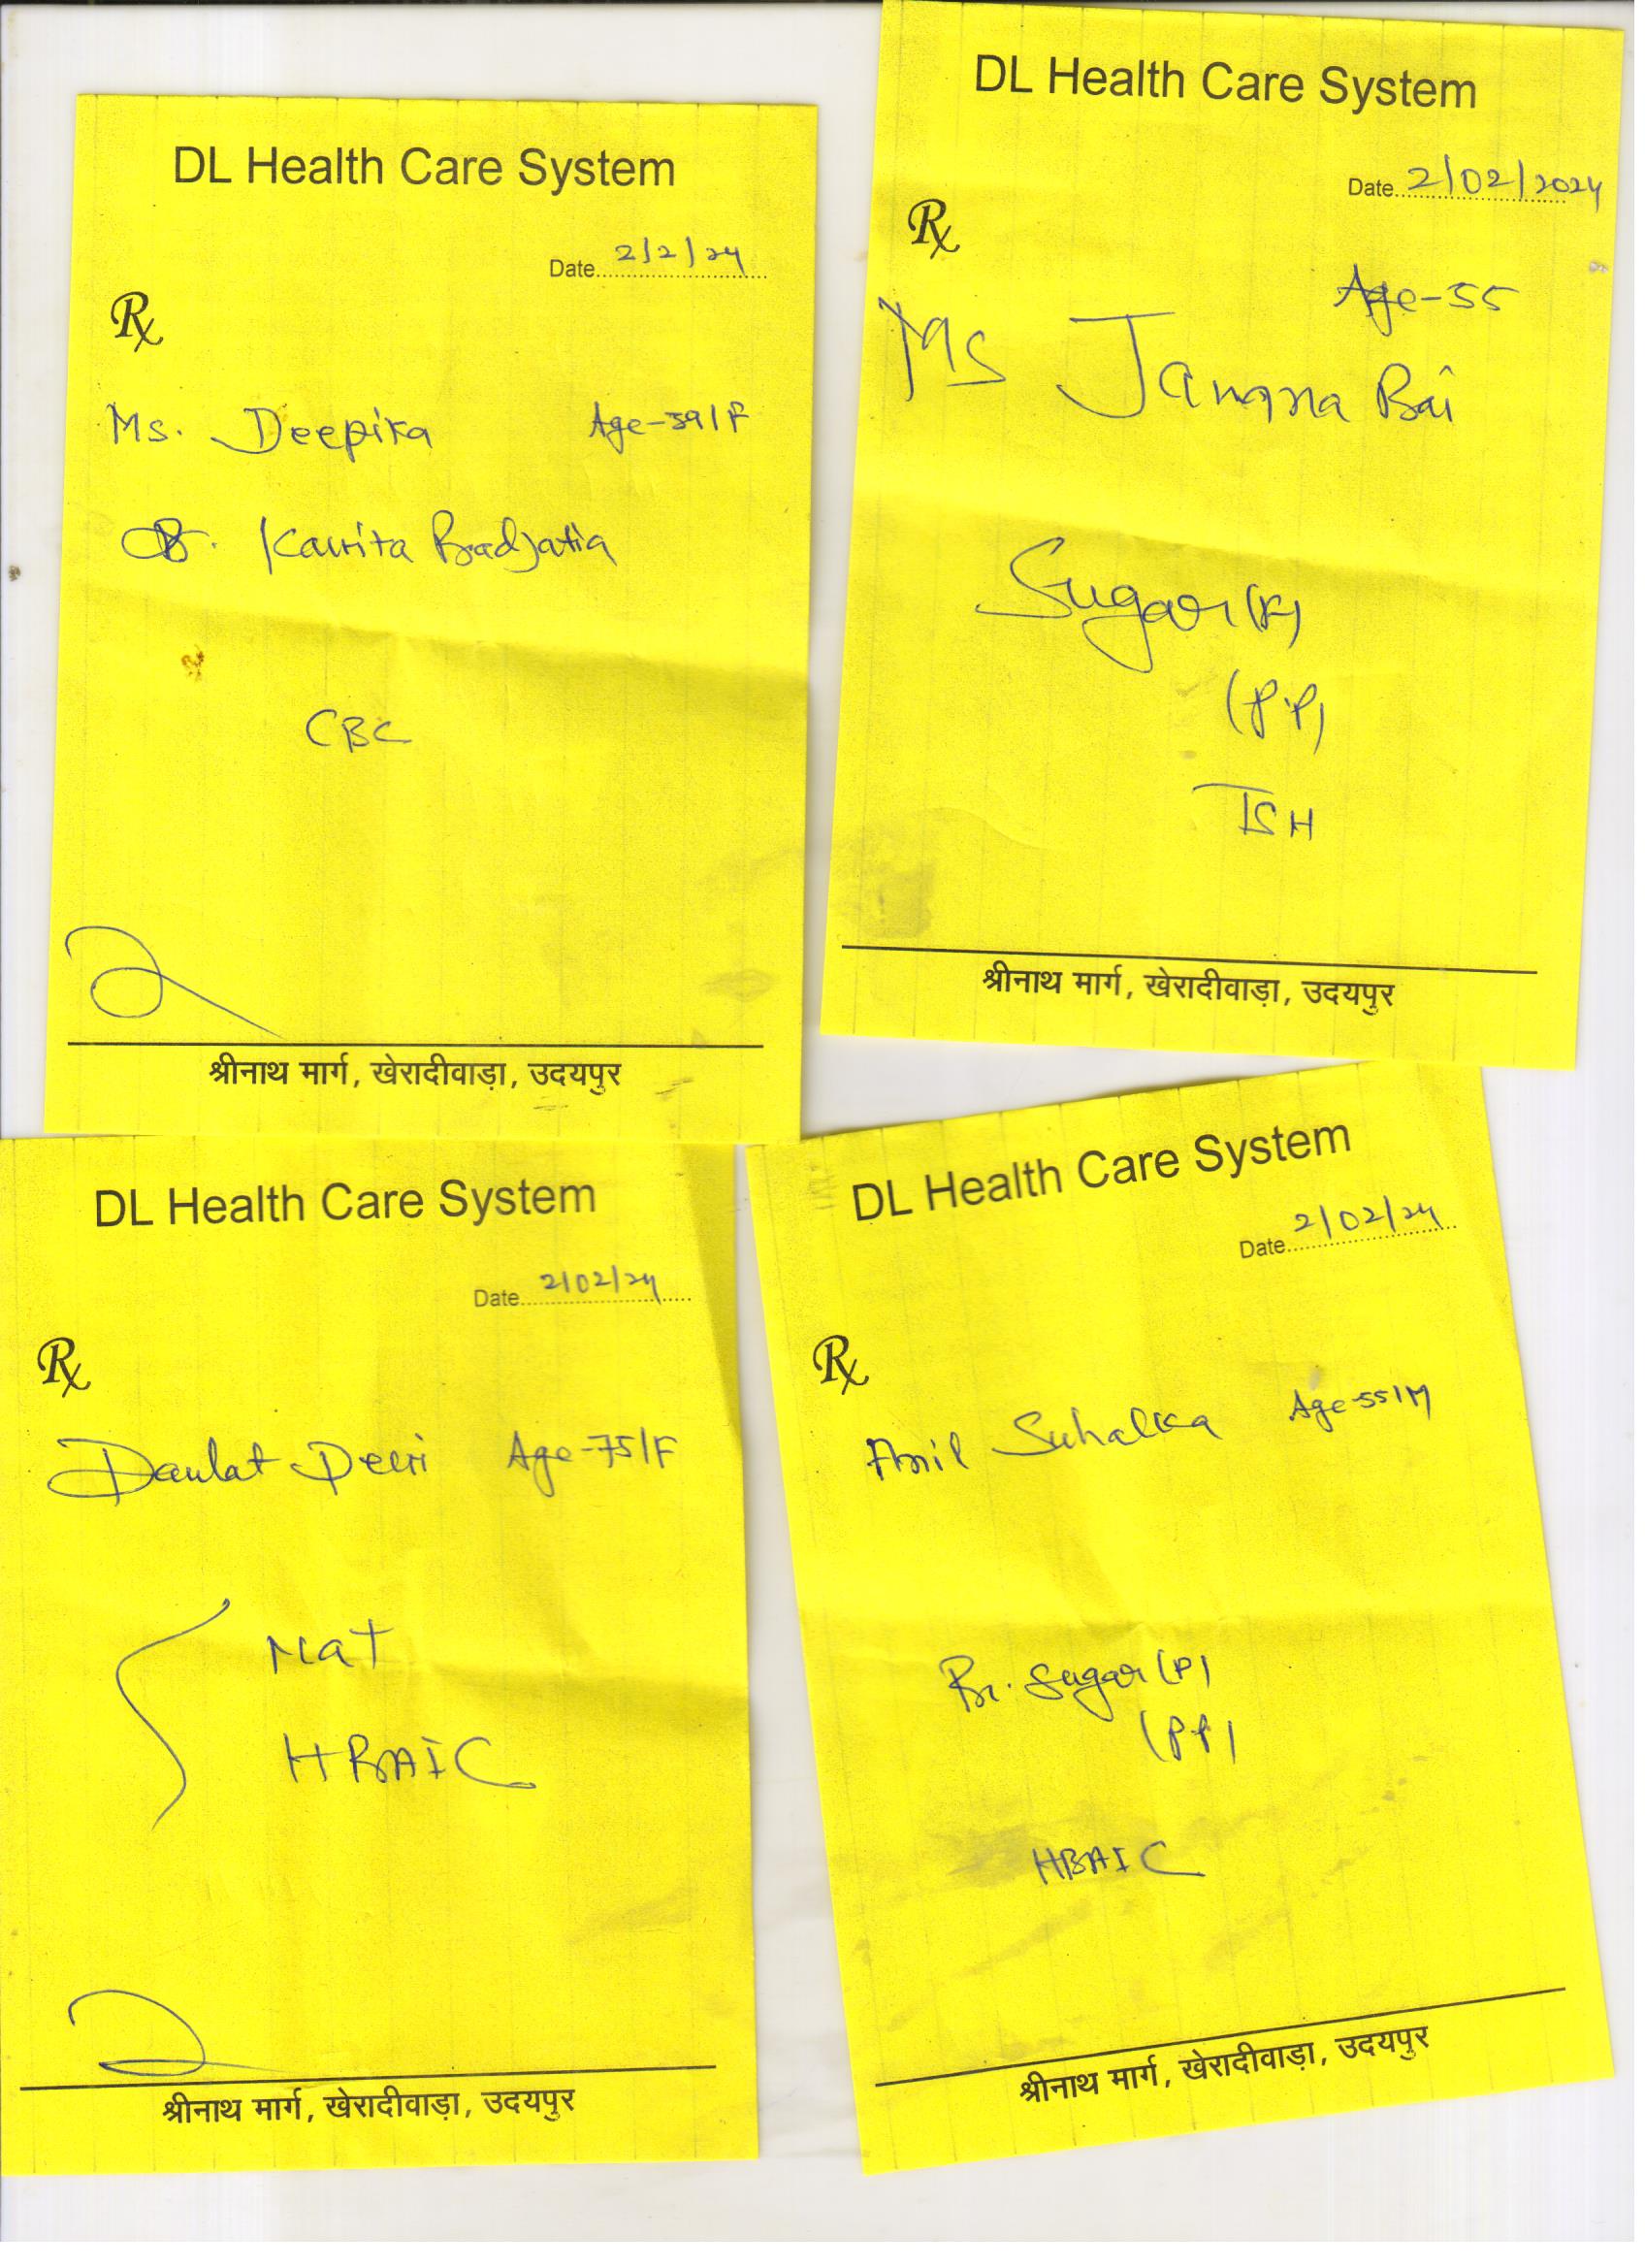 DL Health Care System
Date 2/2/24
Rx
Ms. Deepika Age-39/F
Kavita Badjatia
CBC
श्रीनाथ मार्ग, खेरादीवाड़ा, उदयपुर
DL Health Care System
Date 2/02/2024
Rx
Age-55
Ms Jamana Bai
Sugar (F)
(PP)
TSH
श्रीनाथ मार्ग, खेरादीवाड़ा, उदयपुर
DL Health Care System
Date 2/02/24
Rx
Daulat Devi Age-75/F
Na+
HBA1C
श्रीनाथ मार्ग, खेरादीवाड़ा, उदयपुर
DL Health Care System
Date 2/02/24
Rx
Anil Suhalka Age-55/M
Bl. Sugar (F)
(PP)
HBA1C
श्रीनाथ मार्ग, खेरादीवाड़ा, उदयपुर